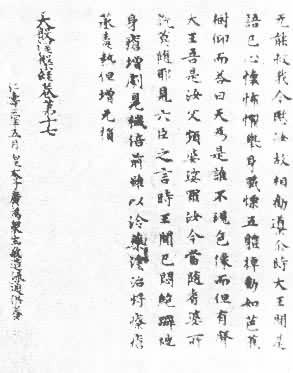 无能救我今愍汝故相勸導尒時大王聞是
語已心懷怖懼舉身戰慄五體掉動如芭蕉
樹仰而荅曰天為是誰不現色像而但有聲
大王吾是汝父頻婆娑羅汝今當隨耆婆所
說莫隨耶見六臣之言時王聞已悶絕躃地
身瘡增劇臭穢倍前雖以冷藥塗治療瘡
蒸毒熱但增无損
大般涅槃經卷第十七
仁壽三年五月